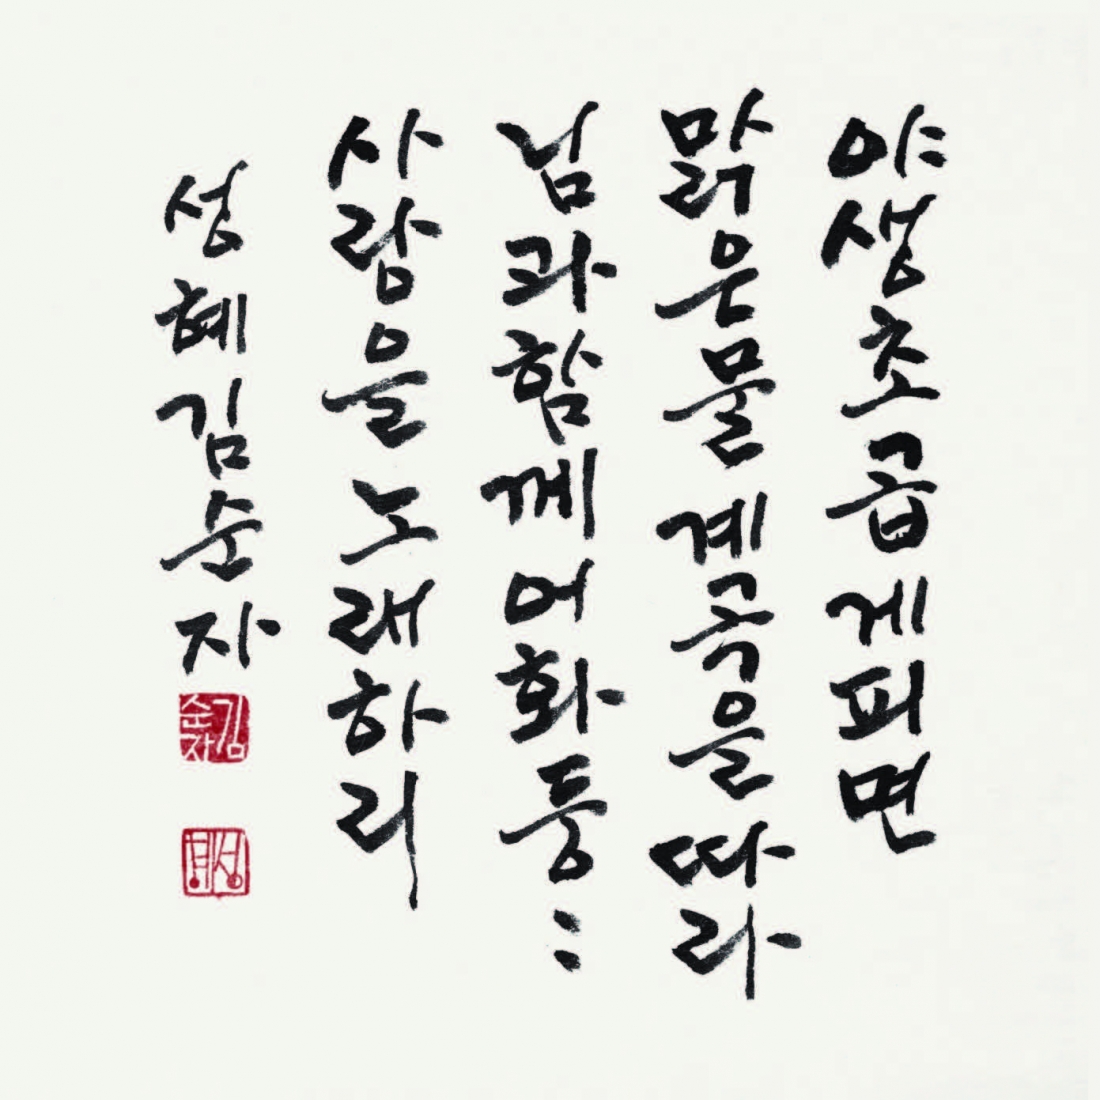 야생초 곱게 피면
맑은 물 계곡을 따라
님과 함께 어화둥 :
사랑을 노래하리
성혜 김순자
김순자
성혜